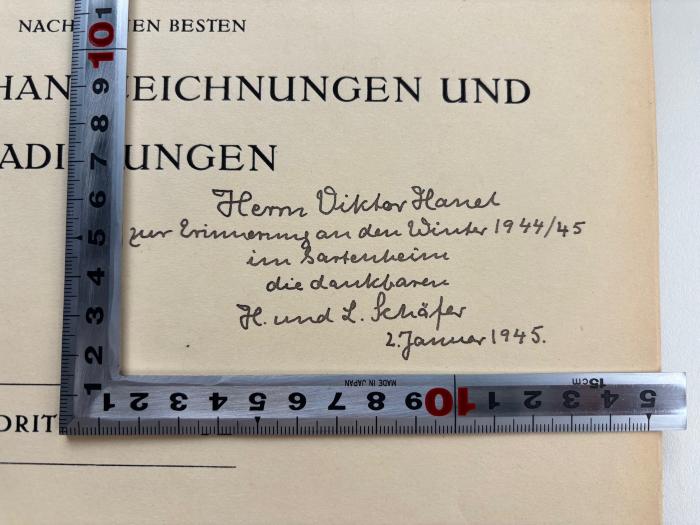 NACH EN BESTEN
HAN EICHNUNGEN UND
ADI UNGEN
Herrn Viktor Hanel
zur Erinnerung an den Winter 1944/45
im Gartenheim
die dankbaren
H. und L. Schäfer
2. Januar 1945.
DRIT
1 2 3 4 5 6 7 8 9 10 1
1 2 3 4 5 6 7 8 9 10 1 1 2 3 4 5
MADE IN JAPAN
15cm